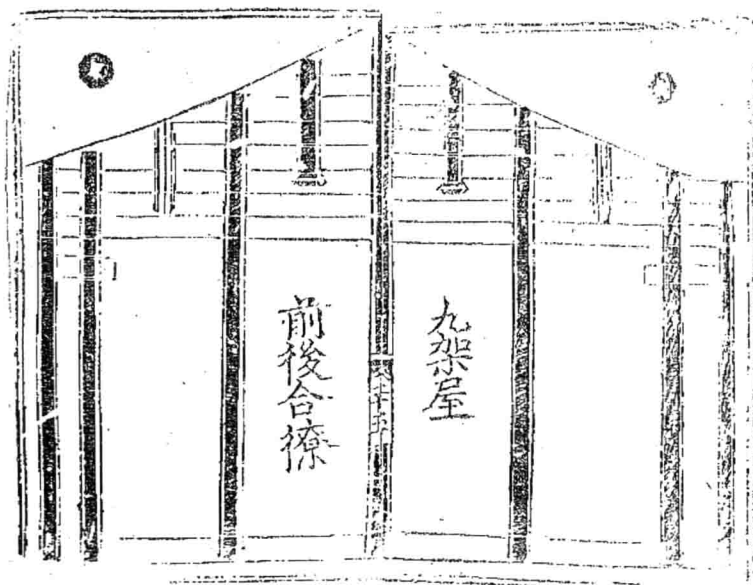 九架屋
前後合橑